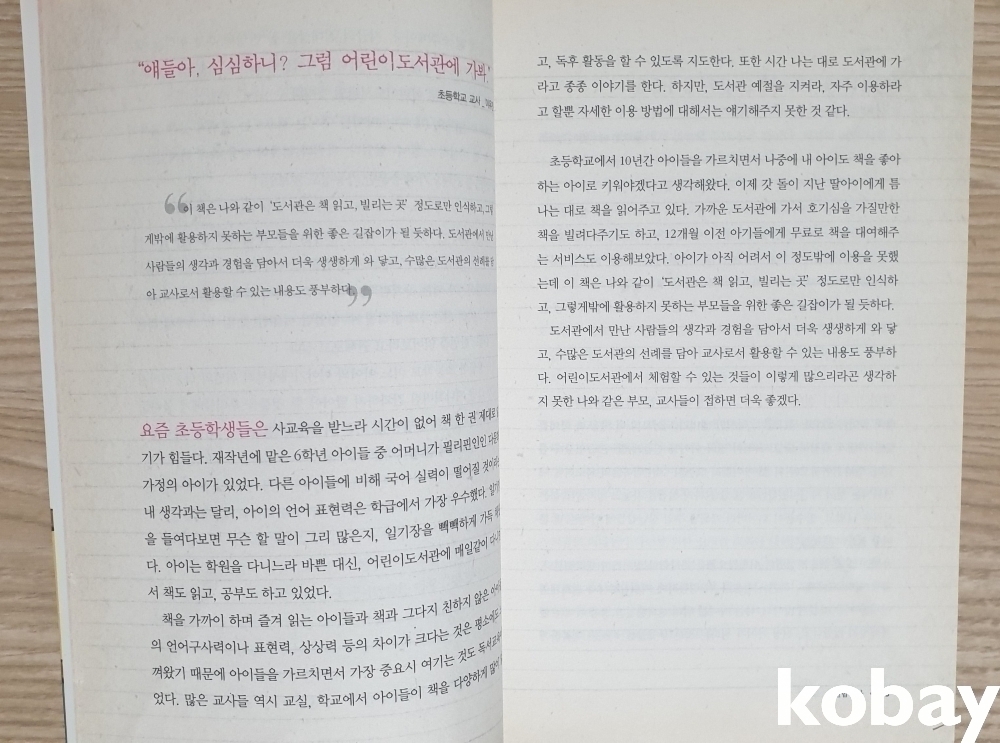 "애들아, 심심하니? 그럼 어린이도서관에 가봐."
초등학교 교사
이 책은 나와 같이 '도서관은 책 읽고, 빌리는 곳' 정도로만 인식하고, 그렇
게밖에 활용하지 못하는 부모들을 위한 좋은 길잡이가 될 듯하다. 도서관에서 만난
사람들의 생각과 경험을 담아서 더욱 생생하게 와 닿고, 수많은 도서관의 선례를 담
아 교사로서 활용할 수 있는 내용도 풍부하다.
요즘 초등학생들은 사교육을 받느라 시간이 없어 책 한 권 제대로
기가 힘들다. 재작년에 맡은 6학년 아이들 중 어머니가 필리핀인인 다문화
가정의 아이가 있었다. 다른 아이들에 비해 국어 실력이 떨어질 것이라는
내 생각과는 달리, 아이의 언어 표현력은 학급에서 가장 우수했다. 일기장
을 들여다보면 무슨 할 말이 그리 많은지, 일기장을 빽빽하게 가득
다. 아이는 학원을 다니느라 바쁜 대신, 어린이도서관에 매일같이
서 책도 읽고, 공부도 하고 있었다.
책을 가까이 하며 즐겨 읽는 아이들과 책과 그다지 친하지 않은
의 언어구사력이나 표현력, 상상력 등의 차이가 크다는 것은 평소에도
껴왔기 때문에 아이들을 가르치면서 가장 중요시 여기는 것도 독서교육
었다. 많은 교사들 역시 교실, 학교에서 아이들이 책을 다양하게 많이
고, 독후 활동을 할 수 있도록 지도한다. 또한 시간 나는 대로 도서관에 가
라고 종종 이야기를 한다. 하지만, 도서관 예절을 지켜라, 자주 이용하라
고 할뿐 자세한 이용 방법에 대해서는 얘기해주지 못한 것 같다.
초등학교에서 10년간 아이들을 가르치면서 나중에 내 아이도 책을 좋아
하는 아이로 키워야겠다고 생각해왔다. 이제 갓 돌이 지난 딸아이에게 틈
나는 대로 책을 읽어주고 있다. 가까운 도서관에 가서 호기심을 가질만한
책을 빌려다주기도 하고, 12개월 이전 아기들에게 무료로 책을 대여해주
는 서비스도 이용해보았다. 아이가 아직 어려서 이 정도밖에 이용을 못했
는데 이 책은 나와 같이 '도서관은 책 읽고, 빌리는 곳' 정도로만 인식하
고, 그렇게밖에 활용하지 못하는 부모들을 위한 좋은 길잡이가 될 듯하다.
도서관에서 만난 사람들의 생각과 경험을 담아서 더욱 생생하게 와 닿
고, 수많은 도서관의 선례를 담아 교사로서 활용할 수 있는 내용도 풍부하
다. 어린이도서관에서 체험할 수 있는 것들이 이렇게 많으리라곤 생각하
지 못한 나와 같은 부모, 교사들이 접하면 더욱 좋겠다.
kobay